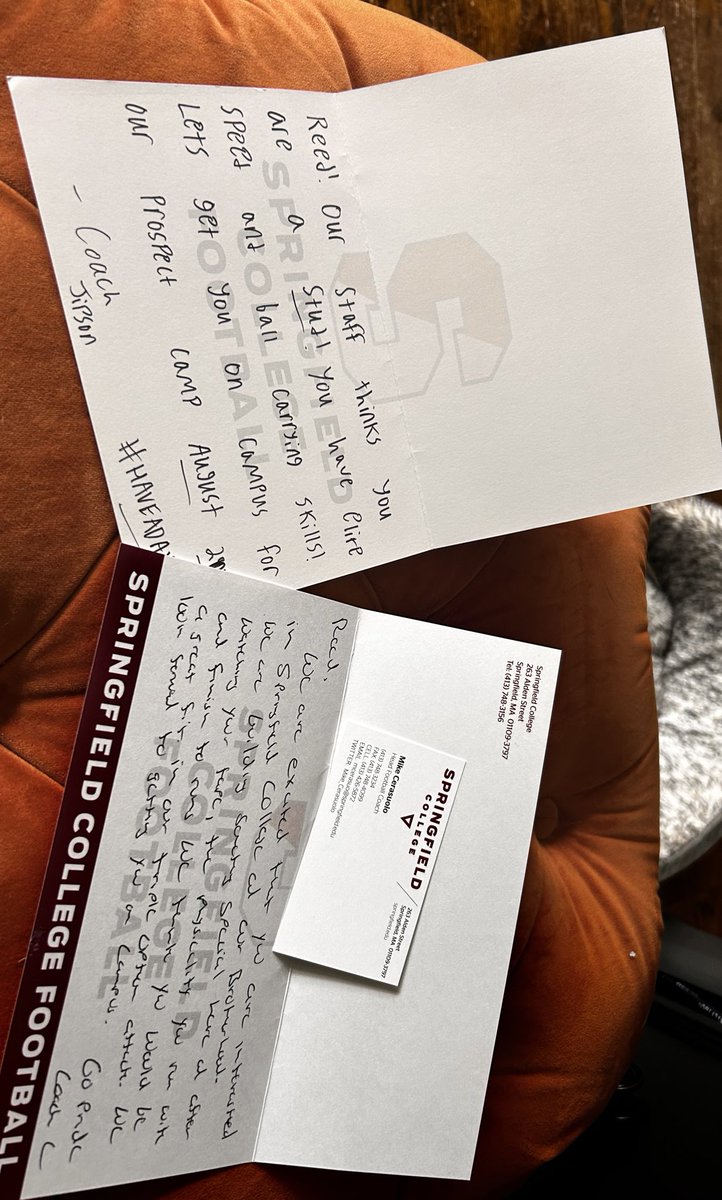 Reed! Our Staff thinks you
are a Stud! You have Elite
speed and ball carrying skills!
Lets get you on campus for
our prospect camp August
- Coach
Jipson
#HAVEADA
SPRINGFIELD
COLLEGE
FOOTBALL
Springfield College
263 Alden Street
Springfield, MA 01109-3797
Tel: (413) 748-3156
SPRINGFIELD
COLLEGE
263 Alden Street
Springfield, MA 01109-3797
springfield.edu
Mike Cerasuolo
Head Football Coach
EMAIL: mcerasuolo@springfield.edu
TWITTER: Mike Cerasuolo
Reed,
We are excited that you are interested
in Springfield College and our Brotherhood.
We are building something special here and after
watching your tape, the physicality you run with
and finish to runs we think you would be
a great fit in our triple option attack. We
look forward to getting you on campus.
Go Pride
Coach C
SPRINGFIELD
COLLEGE
FOOTBALL
SPRINGFIELD COLLEGE FOOTBALL